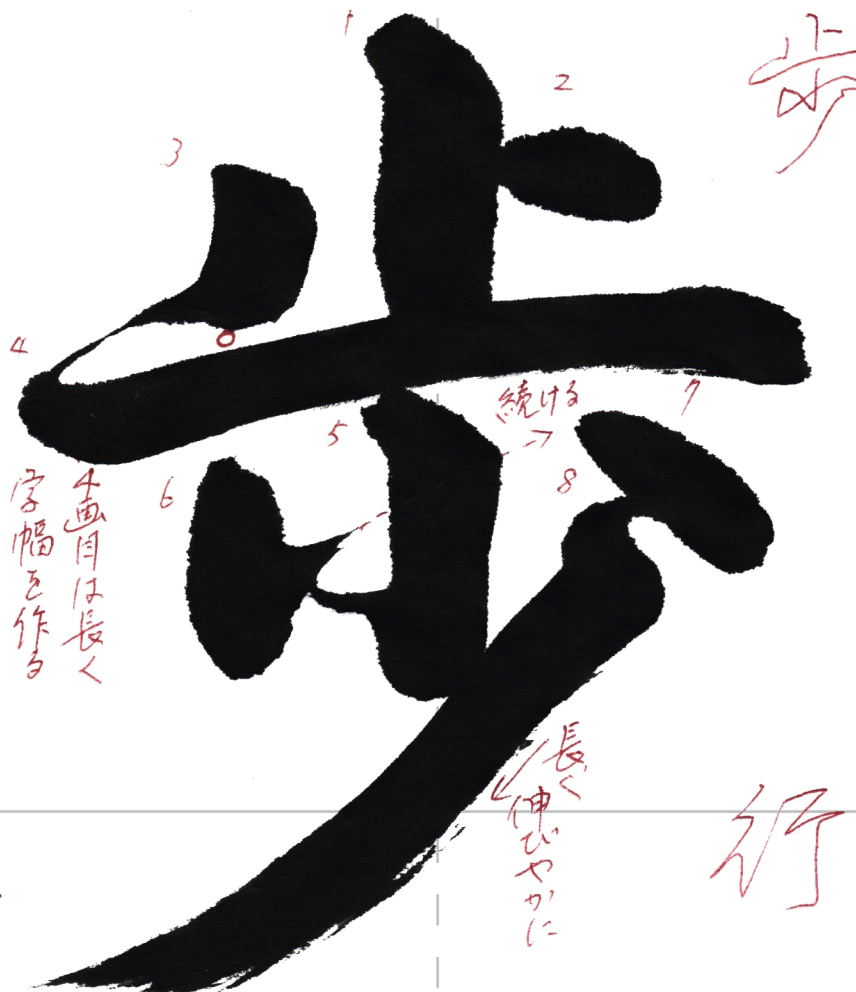 歩
歩
1
2
3
4
5
6
7
8
続ける
4画目は長く
字幅を作る
長く
伸びやかに
行